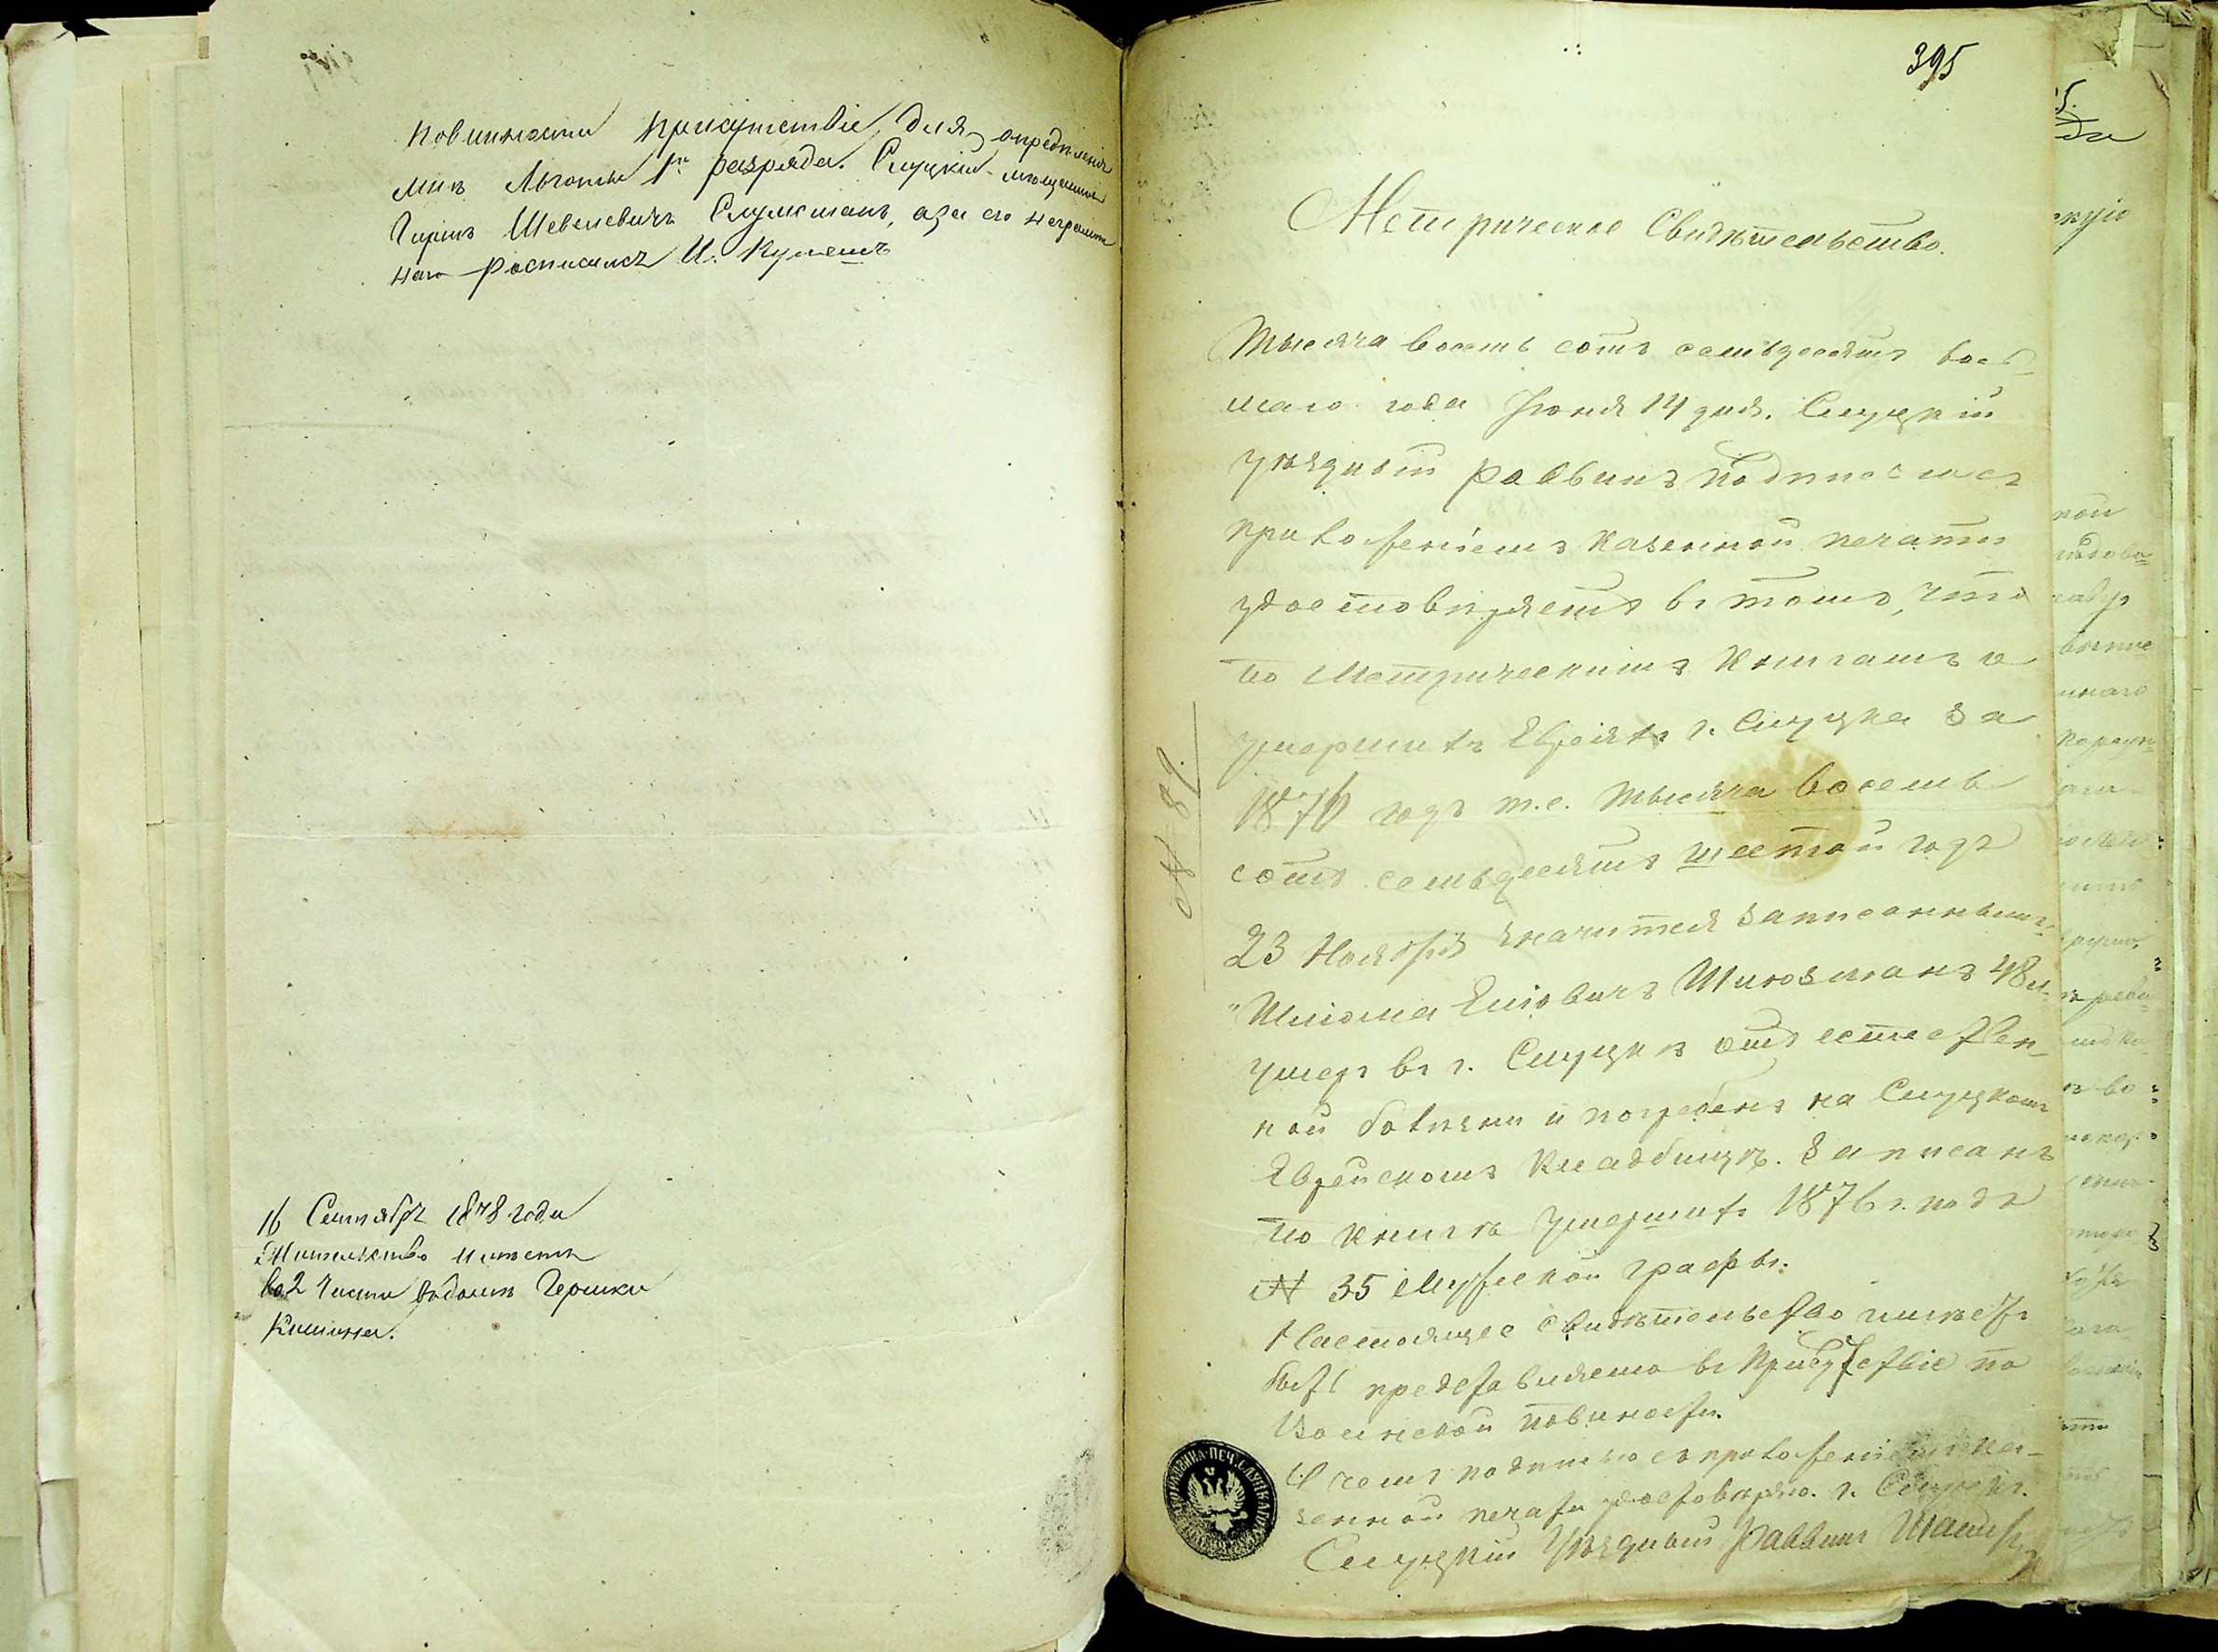 повинности присутствіе, для опредѣленія
мнѣ льготы 1го разряда. Слуцкій мѣщанинъ
Гиршъ Шевелевичъ, а за его неграмот
наго росписался И.
16 Сентября 1878 года
Жительство имѣетъ
во 2 части въ домѣ Гершки
395
Метрическое Свидѣтельство.
Тысяча восемь сотъ семьдесятъ вось-
маго года Іюня 14 дня. Слуцкій
уѣздный Раввинъ подписомъ съ
приложеніемъ казенной печати
удостовѣряетъ въ томъ, что
по Метрическимъ книгамъ о
умершихъ Евреяхъ г. Слуцка за
1876 годъ т.е. тысяча восемь
сотъ семьдесятъ шестой годъ
23 Ноября значится записаннымъ:
"Шлiома Елiовичъ Шлюзманъ 48 л.
умеръ въ г. Слуцкѣ отъ естествен-
ной болѣзни и погребенъ на Слуцкомъ
Еврейскомъ кладбищѣ. Записанъ
по книгѣ умершихъ 1876 г. подъ
N 35 мужеской графы.
Настоящее свидѣтельство имѣетъ
быть представляемо въ Присутствіе по
Воинской повиности.
В чемъ подписью съ приложеніемъ ка-
зенной печати удостовѣряю. г. Слуцкъ.
Слуцкій Уѣздный Раввинъ
N 89.